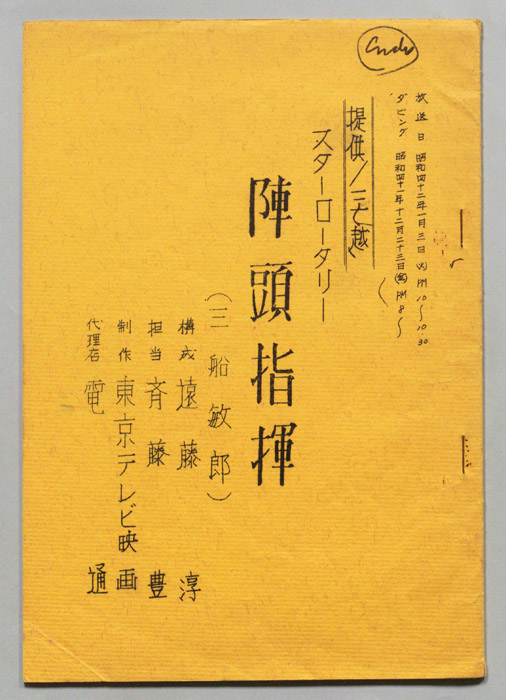 Endo
放送日 昭和四十二年一月三日(火)PM 10〜10.30
ダビング 昭和四十一年十二月二十三日(金)PM 8〜
提供/三越
スターロータリー
陣頭指揮
(三船敏郎)
構成 遠藤 淳
担当 斉藤 豊
制作 東京テレビ映画
代理店 電通